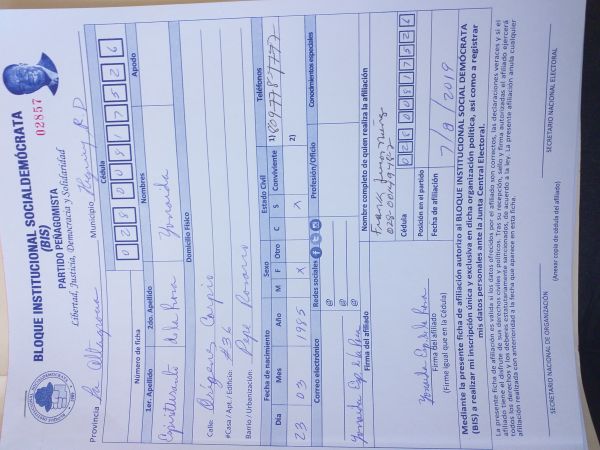 BLOQUE INSTITUCIONAL SOCIALDEMÓCRATA
(BIS)
PARTIDO PEÑAGOMISTA
Libertad, Justicia, Democracia y Solidaridad
02857
Provincia La Altagracia Municipio Higuey R.D
Número de ficha Cédula
02800817526
1er. Apellido 2do. Apellido Nombres Apodo
de la Rosa Yonaida
Domicilio Físico
Calle:
#Casa / Apt. / Edificio: #36
Barrio / Urbanización: Pepe Rosario
Fecha de nacimiento Sexo Estado Civil Teléfonos
Día Mes Año M F Otro C S Conviviente 1) 809-778-7772
23 03 1985 X X 2)
Correo electrónico Redes sociales Profesión/Oficio Conocimientos especiales
@
@
Firma del afiliado Nombre completo de quien realiza la afiliación
Frank
Cédula
02800817526
Posición en el partido
Firma del afiliado
(Firme igual que en la Cédula)
Fecha de afiliación 7/8/2019
Mediante la presente ficha de afiliación autorizo al BLOQUE INSTITUCIONAL SOCIAL DEMÓCRATA
(BIS) a realizar mi inscripción única y exclusiva en dicha organización política, así como a registrar
mis datos personales ante la Junta Central Electoral.
La presente ficha de afiliación es valida si los datos ofrecidos por el afiliado son correctos, las declaraciones veraces y si el
afiliado tiene el disfrute de sus derechos civiles y políticos. Tras su recepción, sello y firma autorizadas el afiliado ejercerá
todos los derechos y los deberes estatutariamente sancionados, de acuerdo a la ley. La presente afiliación anula cualquier
afiliación realizada con anterioridad a la fecha que aparece en esta ficha.
(Anexar copia de cédula del afiliado)
SECRETARIO NACIONAL DE ORGANIZACIÓN SECRETARIO NACIONAL ELECTORAL